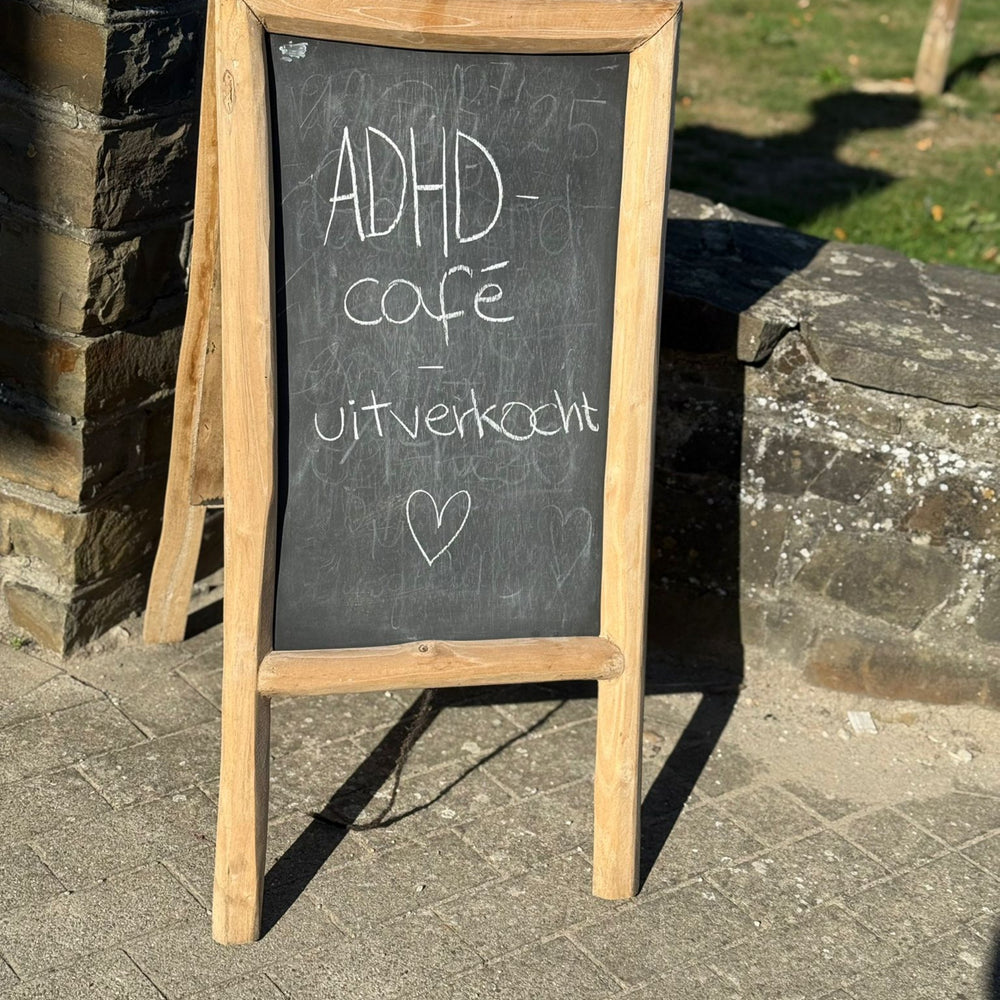 ADHD-
café
-
uitverkocht